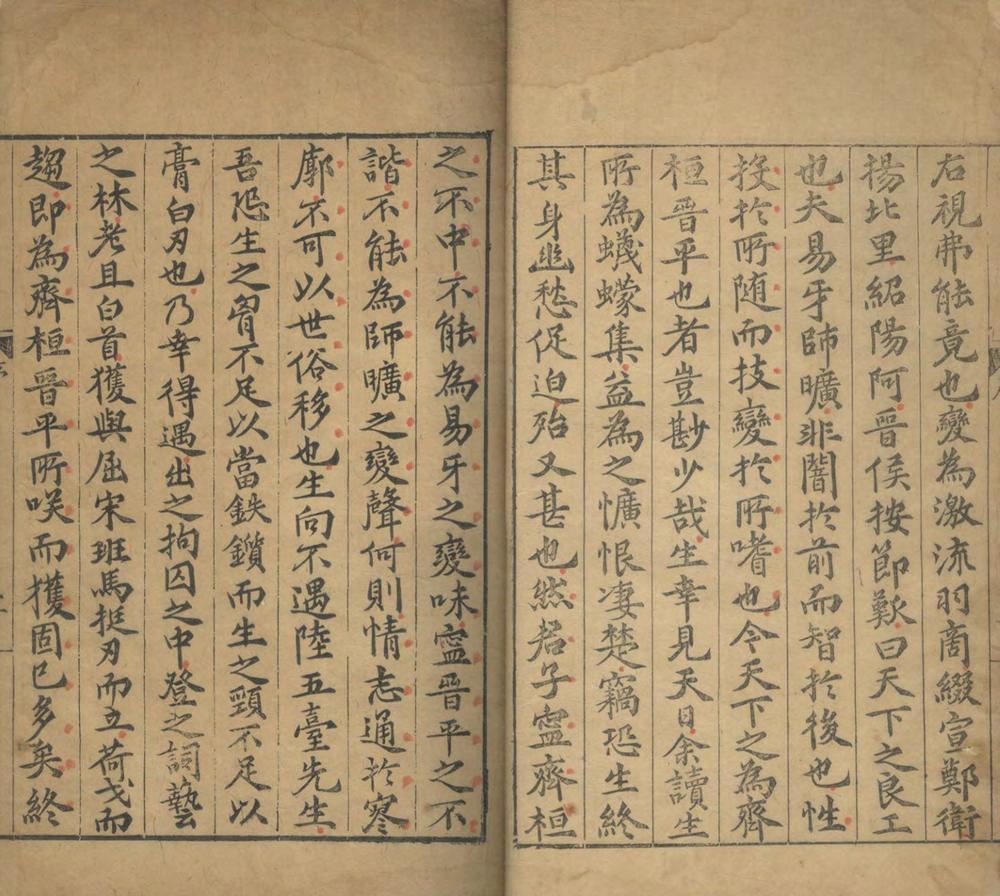 右視弗能竟也變為激流羽商綴宣鄭衛
揚北里紹陽阿晉侯按節歎曰天下之良工
也夫易牙師曠非闇於前而智於後也性
投於所随而技變於所嗜也今天下之為齊
桓晉平也者豈尠少哉生幸見天日余讀生
所為蠛蠓集益為之懭悢凄楚竊恐生終
其身幽愁促迫殆又甚也然君子寧齊桓
之不中不能為易牙之變味寧晉平之不
諧不能為師曠之變聲何則情志通於寥
廓不可以世俗移也生向不遇陸五臺先生
吾恐生之胷不足以當鈇鑕而生之頸不足以
膏白刃也乃幸得遇出之拘囚之中登之詞藝
之林老且白首獲與屈宋班馬挺刃而立荷戈而
趨即為齊桓晉平所咲而獲固已多矣終